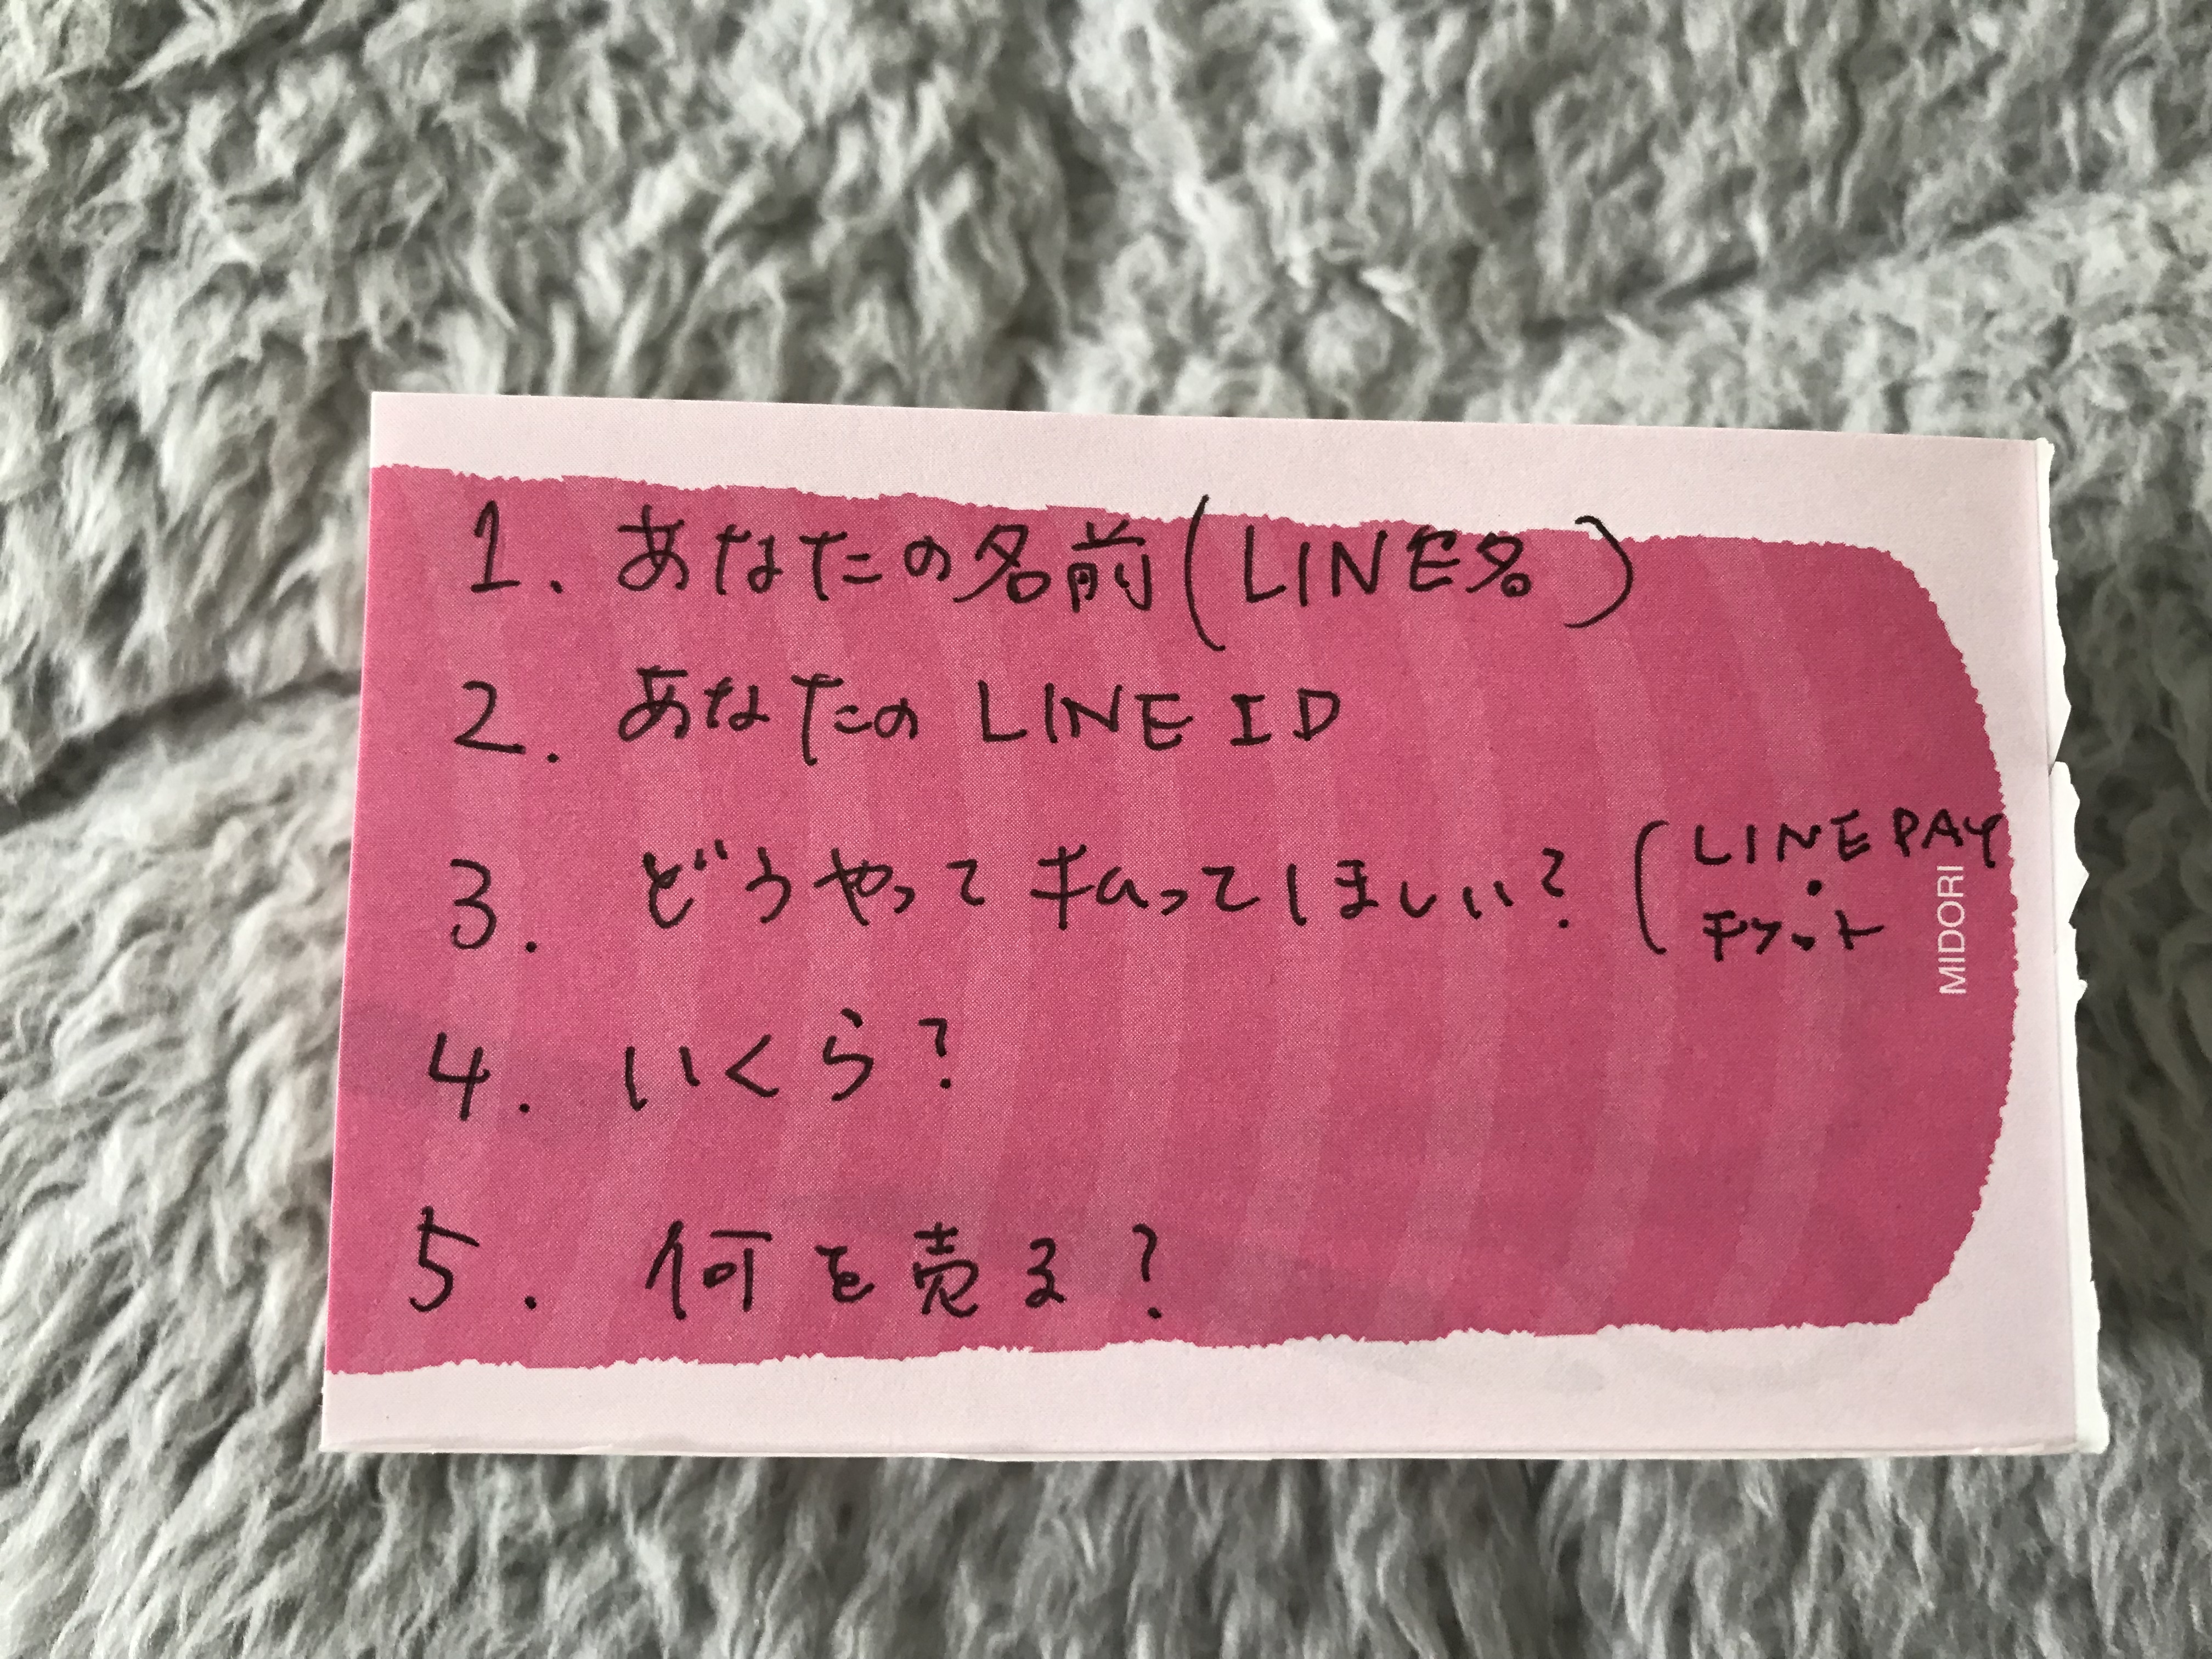 1. あなたの名前(LINE名)
2. あなたの LINE ID
3. どうやって払ってほしい? (LINE PAY
・
チケット
MIDORI
4. いくら?
5. 何を売る?